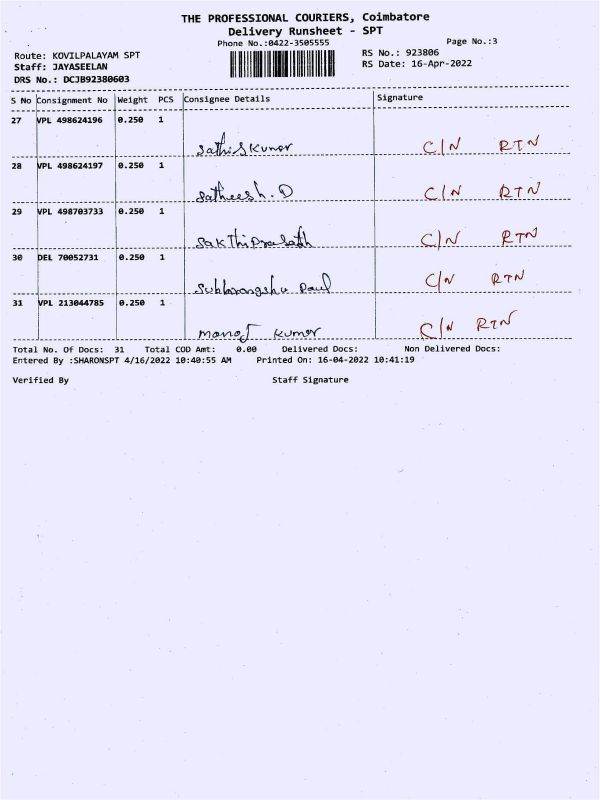 THE PROFESSIONAL COURIERS, Coimbatore
Delivery Runsheet - SPT
Phone No.:0422-3505555
Page No.:3
Route: KOVILPALAYAM SPT
RS No.: 923806
Staff: JAYASEELAN
RS Date: 16-Apr-2022
DRS No.: DCJB92380603
S No Consignment No Weight PCS Consignee Details Signature
27 VPL 498624196 0.250 1
Sathis Kumar C/N RTN
28 VPL 498624197 0.250 1
Satheesh. D C/N RTN
29 VPL 498703733 0.250 1
Sakthi Prasath C/N RTN
30 DEL 70052731 0.250 1
Subhrangshu Paul C/N RTN
31 VPL 213044785 0.250 1
Manoj Kumar C/N RTN
Total No. Of Docs: 31 Total COD Amt: 0.00 Delivered Docs: Non Delivered Docs:
Entered By :SHARONSPT 4/16/2022 10:40:55 AM Printed On: 16-04-2022 10:41:19
Verified By Staff Signature